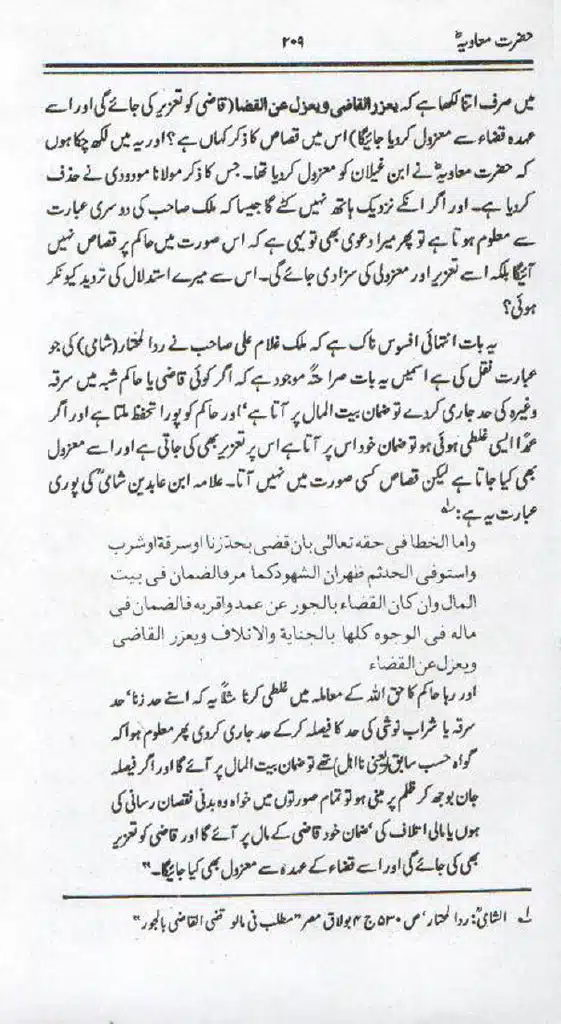 حضرت معاویہؓ ۲۰۹
میں صرف اتنا لکھا ہے کہ یعزر القاضی ویعزل عن القضا (قاضی کو تعزیر کی جائے گی اور اسے
عہدہ قضاء سے معزول کردیا جائیگا) اس میں قصاص کا ذکر کہاں ہے؟ اور یہ میں لکھ چکا ہوں
کہ حضرت معاویہؓ نے ابن غیلان کو معزول کردیا تھا۔ جس کا ذکر مولانا مودودی نے حذف
کردیا ہے۔ اور اگر انکے نزدیک ہاتھ نہیں کٹے گا جیسا کہ ملک صاحب کی دوسری عبارت
سے معلوم ہوتا ہے تو پھر میرا دعویٰ بھی تو یہی ہے کہ اس صورت میں حاکم پر قصاص نہیں
آئیگا بلکہ اسے تعزیر اور معزولی کی سزا دی جائے گی۔ اس سے میرے استدلال کی تردید کیونکر
ہوئی؟
یہ بات انتہائی افسوس ناک ہے کہ ملک غلام علی صاحب نے ردالمختار (شامی) کی جو
عبارت نقل کی ہے اسمیں یہ بات صراحتہً موجود ہے کہ اگر کوئی قاضی یا حاکم شبہ میں سرقہ
وغیرہ کی حد جاری کردے تو ضمان بیت المال پر آتا ہے' اور حاکم کو پورا تحفظ ملتا ہے اور اگر
عمداً ایسی غلطی ہوئی ہو تو ضمان خود اس پر آتا ہے اس پر تعزیر بھی کی جاتی ہے اور اسے معزول
بھی کیا جاتا ہے لیکن قصاص کسی صورت میں نہیں آتا۔ علامہ ابن عابدین شامیؒ کی پوری
عبارت یہ ہے:۱؎
واما الخطا فی حقه تعالٰی بان قضی بحد زنا اوسرقة اوشرب
واستوفی الحد ثم ظهر ان الشهود کما مر فالضمان فی بیت
المال وان کان القضاء بالجور عن عمد واقربه فالضمان فی
ماله فی الوجوه کلها بالجنایة والاتلاف ویعزر القاضی
ویعزل عن القضاء
اور رہا حاکم کا حق اللہ کے معاملہ میں غلطی کرنا مثلاً یہ کہ اسنے حد زنا' حد
سرقہ یا شراب نوشی کی حد کا فیصلہ کرکے حد جاری کردی پھر معلوم ہوا کہ
گواہ حسب سابق (یعنی نااہل) تھے تو ضمان بیت المال پر آئے گا اور اگر فیصلہ
جان بوجھ کر ظلم پر مبنی ہو تو تمام صورتوں میں خواہ وہ بدنی نقصان رسانی کی
ہوں یا مالی اتلاف کی' ضمان خود قاضی کے مال پر آئے گا اور قاضی کو تعزیر
بھی کی جائے گی اور اسے قضاء کے عہدہ سے معزول بھی کیا جائیگا۔"
۱؎ الشامیؒ: ردالمختار' ص ۵۳۰ ج ۴ بولاق مصر "مطلب فی مالو قضی القاضی بالجور"